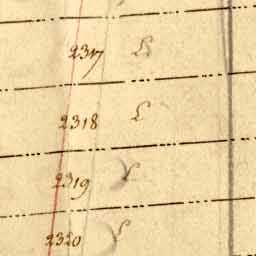 2317
2318
2319
2320